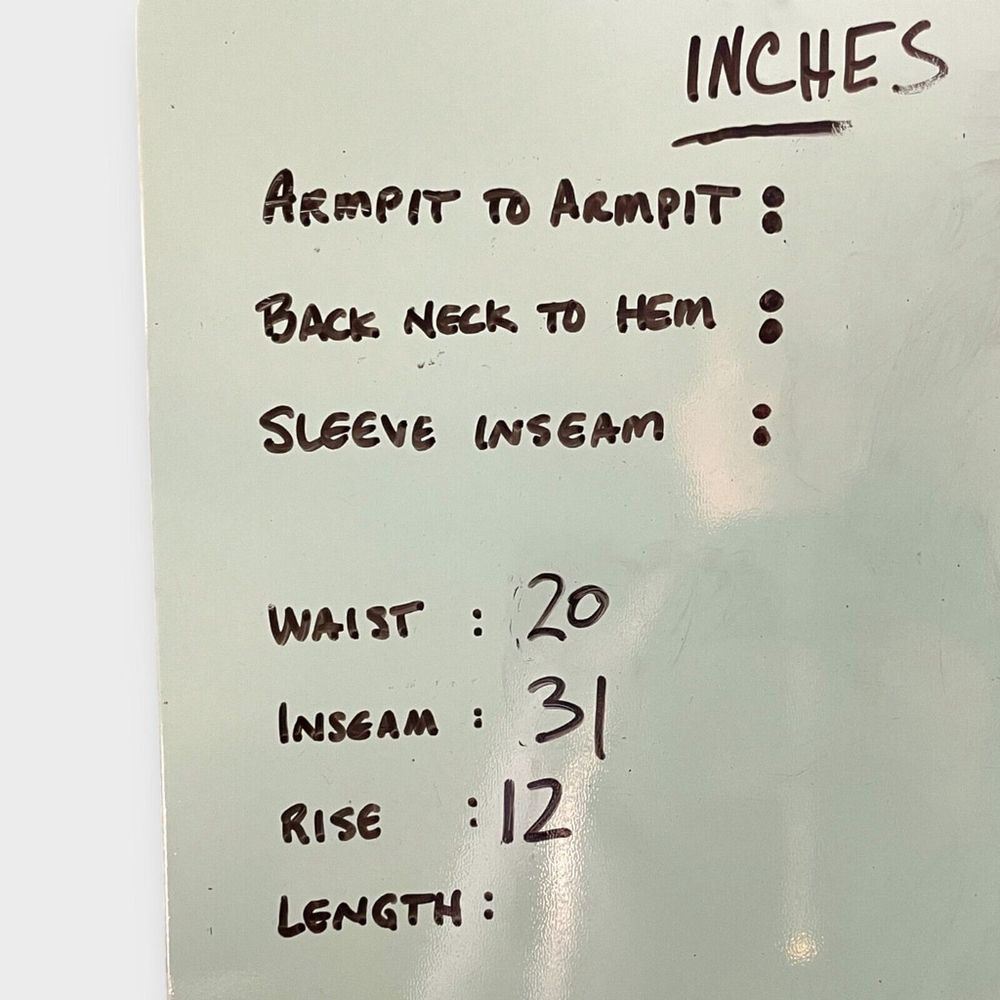 INCHES
ARMPIT TO ARMPIT :
BACK NECK TO HEM :
SLEEVE INSEAM :
WAIST : 20
INSEAM : 31
RISE : 12
LENGTH :